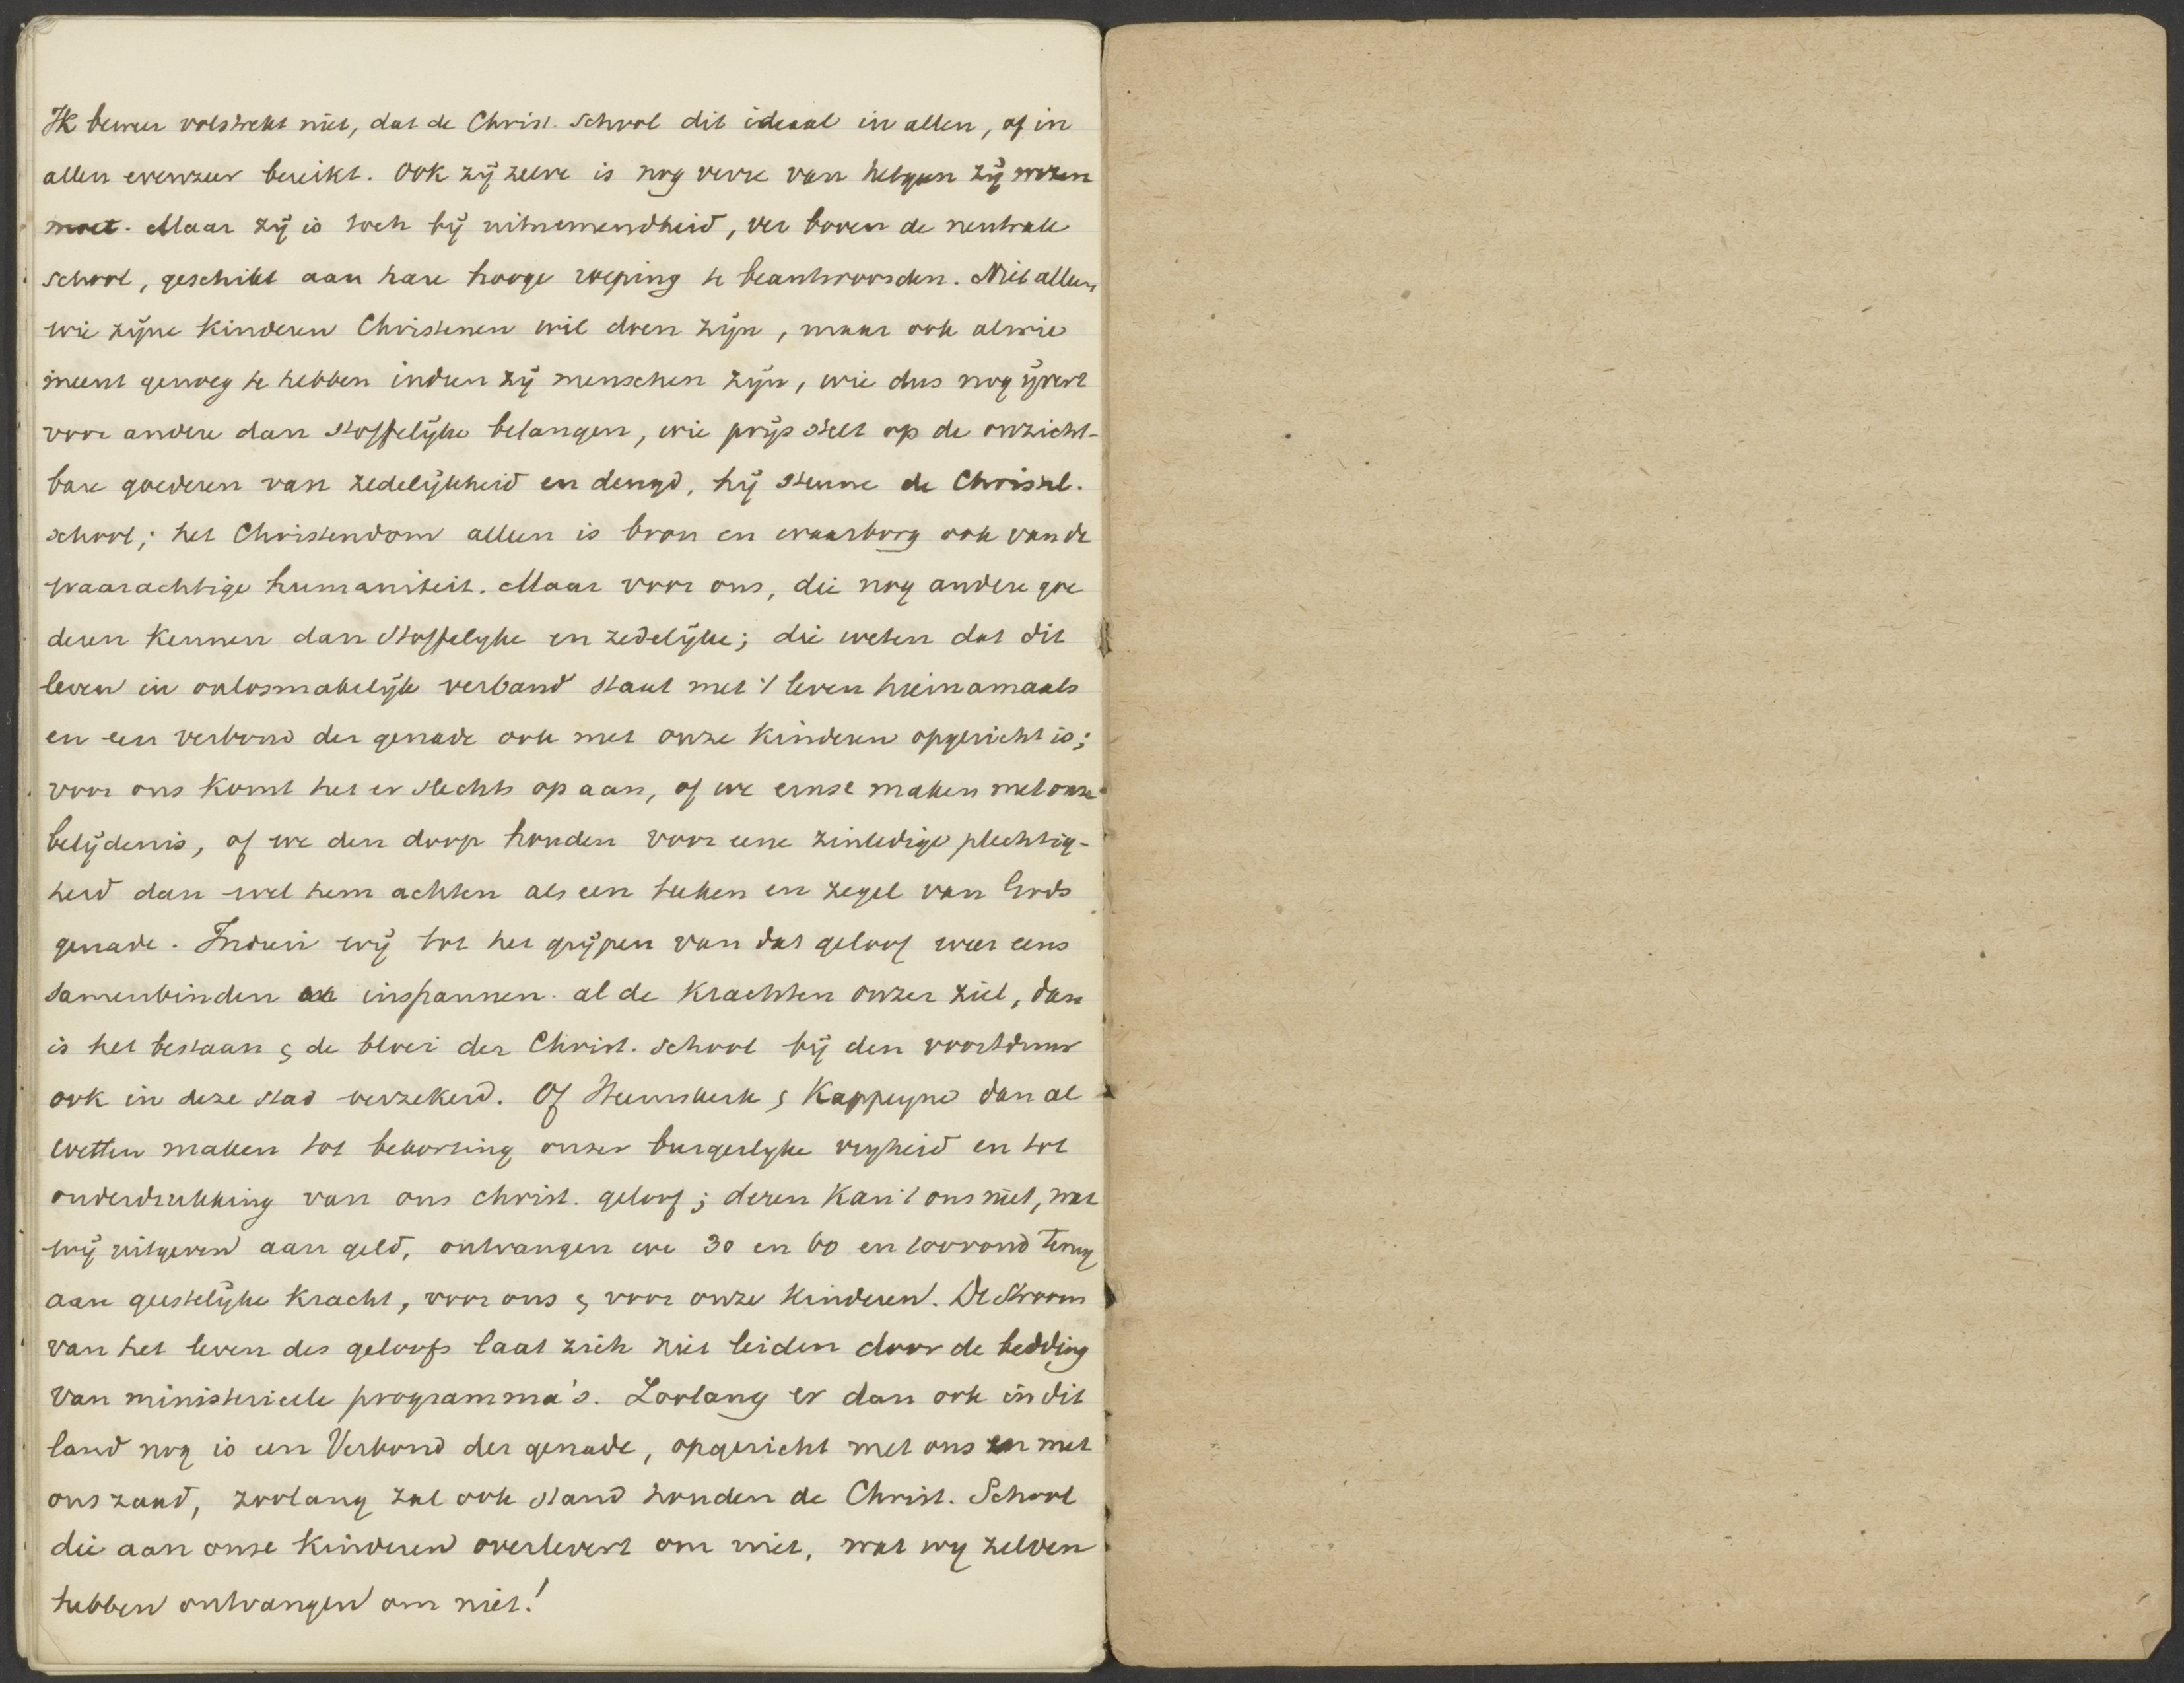 Ik beweer volstrekt niet, dat de Christ. School dit ideaal in allen, of in
allen evenzeer bereikt. Ook zij zelve is nog verre van hetgeen zij wezen
moet. Maar zij is toch bij uitnemendheid, ver boven de neutrale
school, geschikt aan hare hooge roeping te beantwoorden. Niet alleen,
wie zijne kinderen Christenen wil doen zijn, maar ook alwie
meent genoeg te hebben indien zij menschen zijn, wie dus nog ijvert
voor andere dan stoffelijke belangen, wie prijs stelt op de onzicht-
bare goederen van zedelijkheid en deugd, hij steune de Christel.
school; het Christendom alleen is bron en waarborg ook van de
waarachtige humaniteit. Maar voor ons, die nog andere goe
deren kennen dan stoffelyke en zedelijke; die weten dat dit
leven in onlosmakelijk verband staat met 't leven hiernamaals
en een verbond der genade ook met onze kinderen opgericht is;
voor ons komt het er slechts op aan, of we ernst maken met onze
belijdenis, of we den doop houden voor eene zinledige plechtig-
heid dan wel hem achten als een teeken en zegel van Gods
genade. Indien wij tot het grijpen van dat geloof weer eens
samenbinden en inspannen al de krachten onzer ziel, dan
is het bestaan & de bloei der Christ. School bij den voortduur
ook in deze stad verzekerd. Of Heemskerk & Kappeyne dan al
wetten maken tot bekorting onzer burgerlyke vryheid en tot
onderdrukking van ons christ. geloof; deren kan 't ons niet, wat
wij uitgeven aan geld, ontvangen we 30 en 60 en 100voud terug
aan geestelijke kracht, voor ons & voor onze kinderen. De stroom
van het leven des geloofs laat zich niet leiden door de bedding
van ministerieele programma's. Zoolang er dan ook in dit
land nog is een Verbond der genade, opgericht met ons en met
ons zaad, zoolang zal ook stand houden de Christ. School
die aan onze kinderen overlevert om niet, wat wy zelven
hebben ontvangen om niet!